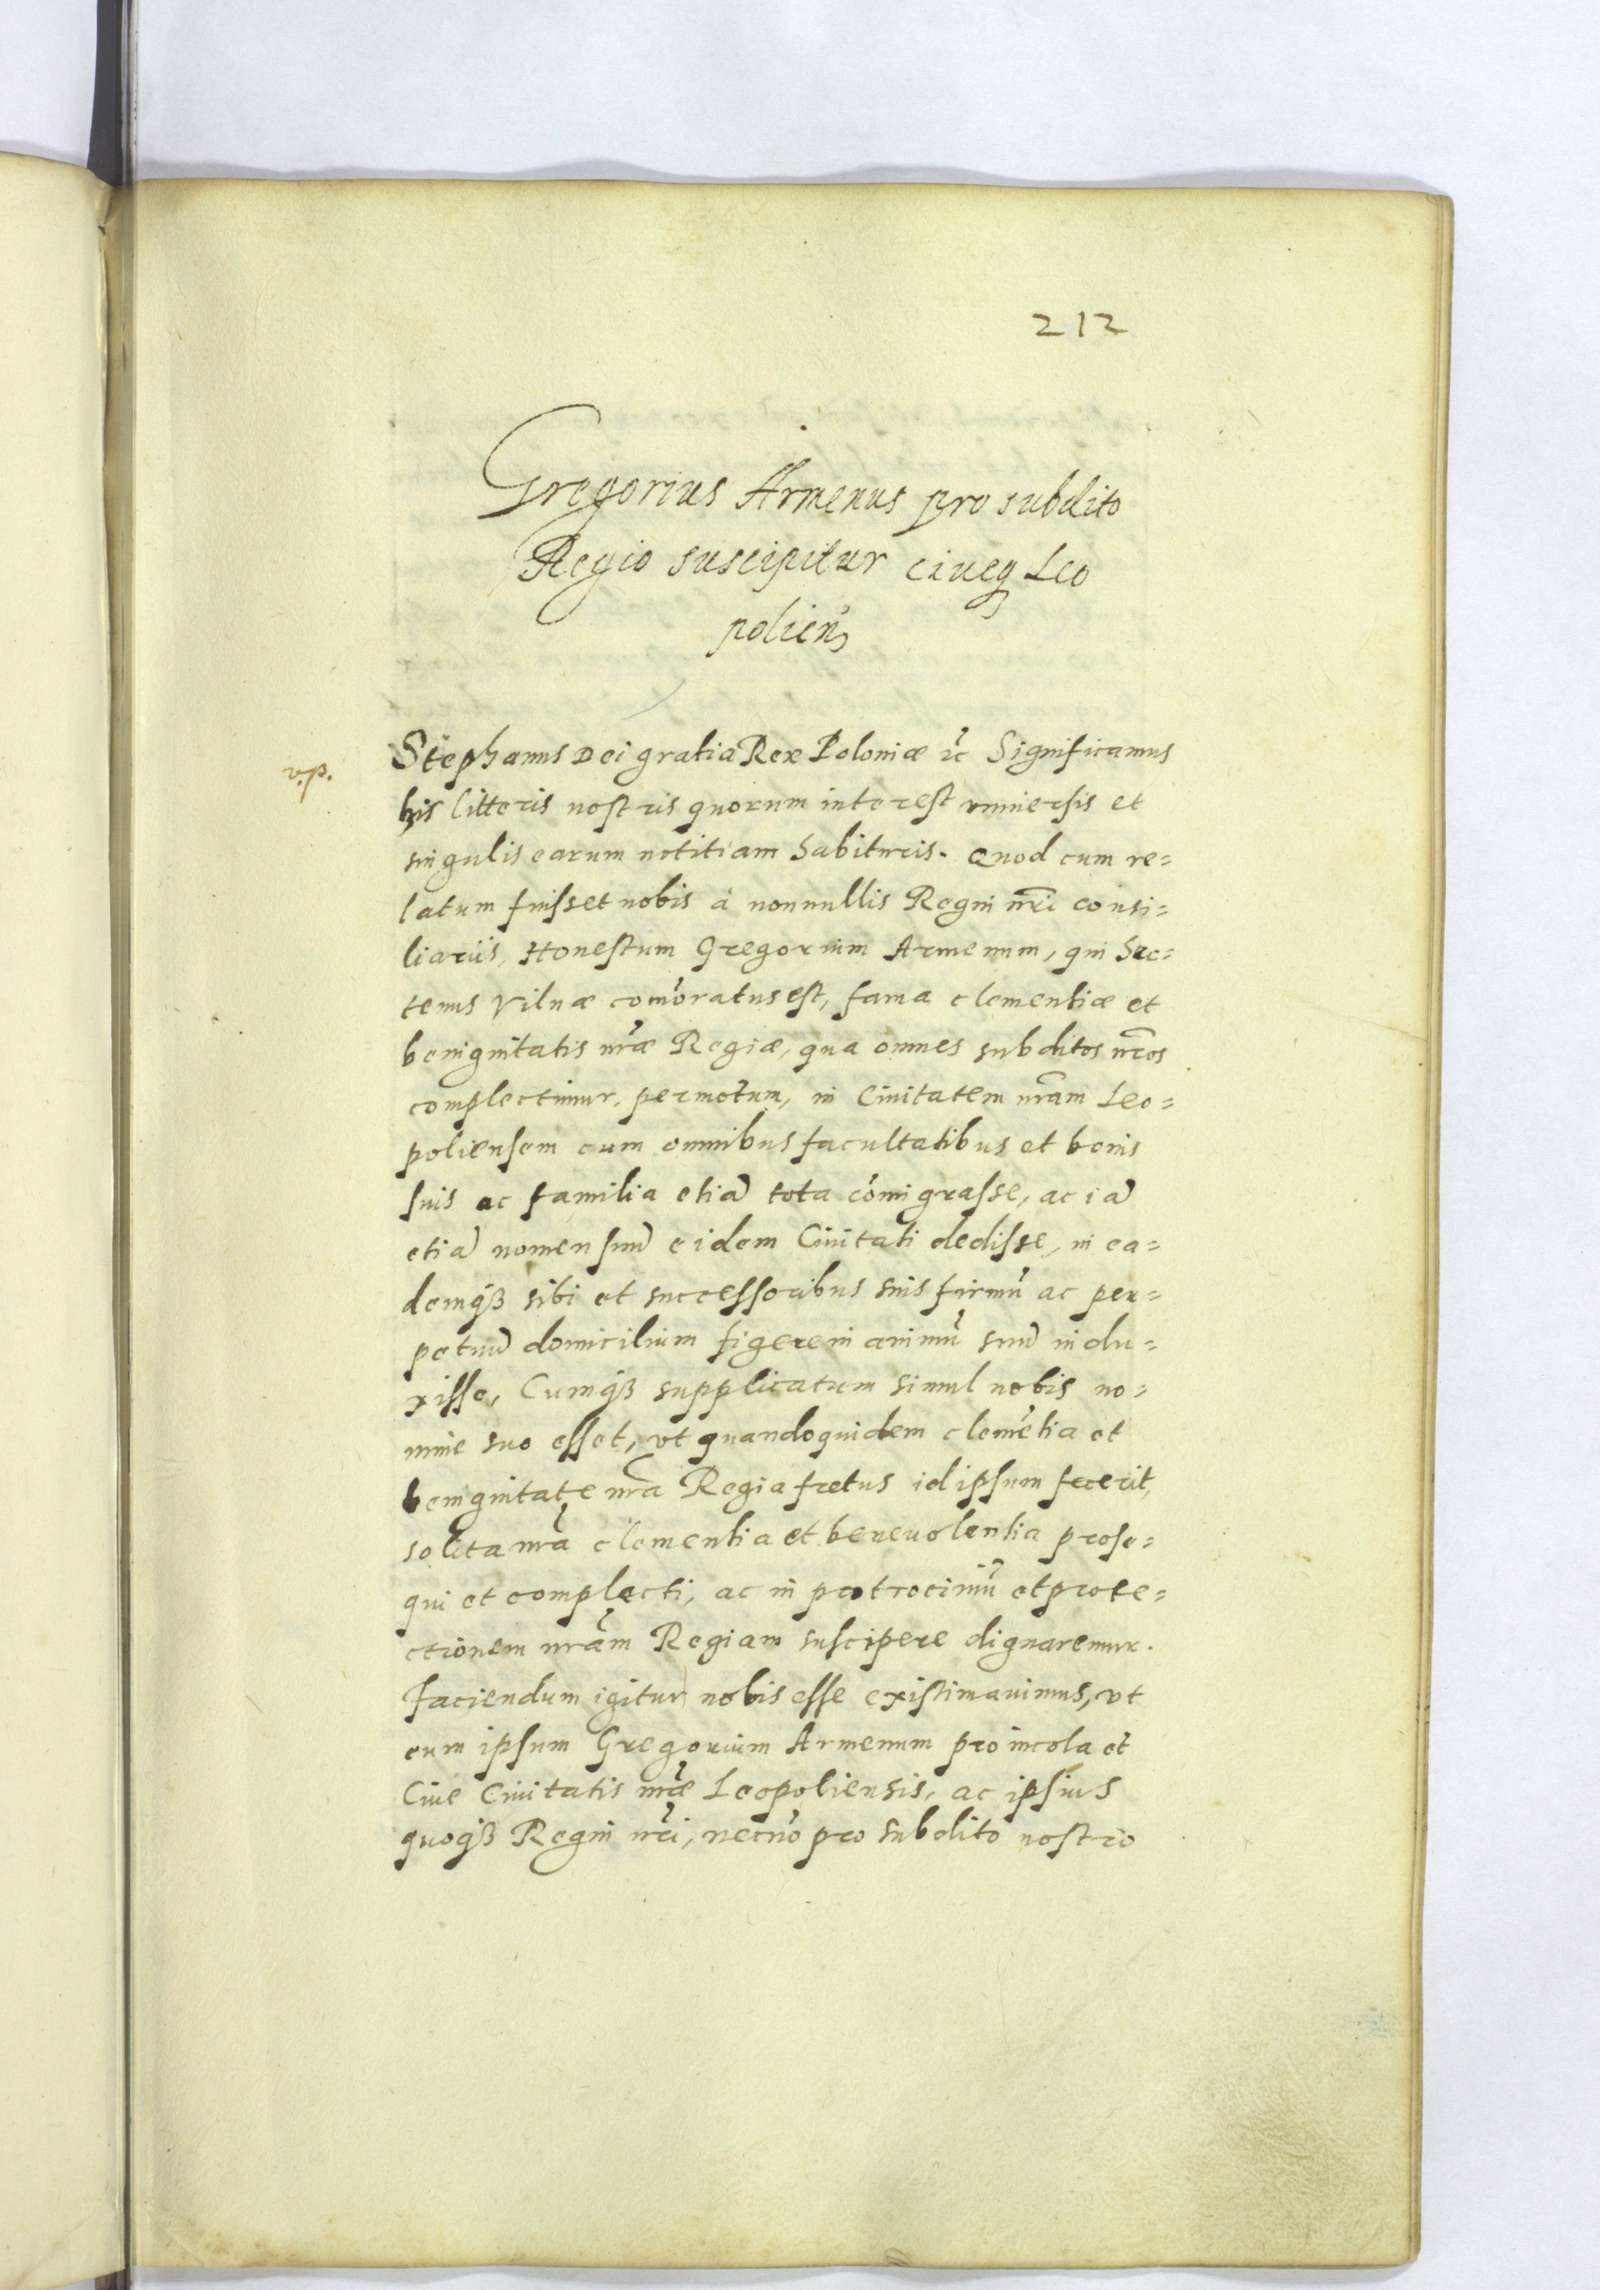 212
Gregorius Armenus pro subdito
Regio suscipitur ciueq Leo
polien̄
v.p.
Stephanus Dei gratia Rex Poloniæ etc̃ Significamus
his litteris nostris quorum interest vniuersis et
singulis earum notitiam habituris. Quod cum re=
latum fuisset nobis à nonnullis Regni nr̃i consi=
liariis, Honestum Gregorium Armenum, qui hac=
tenus Vilnæ com̃oratus est, fama clementiæ et
benignitatis nr̃æ Regiæ, qua omnes subditos nr̃os
complectimur, permotum, in Ciuitatem nr̃am Leo=
poliensem cum omnibus facultatibus et bonis
suis ac familia etiã tota com̃igrasse, ac iã
etiã nomen suũ eidem Ciuitati dedisse, in ea=
demqȝ sibi et successoribus suis firmũ ac per=
petuũ domicilium figere in animũ suũ indu=
xisse, Cumqȝ supplicatum simul nobis no=
mine suo esset, vt quandoquidem clemẽtia et
benignitate nr̃a Regia fretus id ipsum fecerit,
solita nr̃a clementia et beneuolentia prose=
qui et complecti, ac in patrociniũ et prote=
ctionem nr̃am Regiam suscipere dignaremur.
Faciendum igitur nobis esse existimauimus, vt
eum ipsum Gregorium Armenum pro incola et
Ciue Ciuitatis nr̃æ Leopoliensis, ac ipsius
quoqȝ Regni nr̃i, necnõ pro subdito nostro